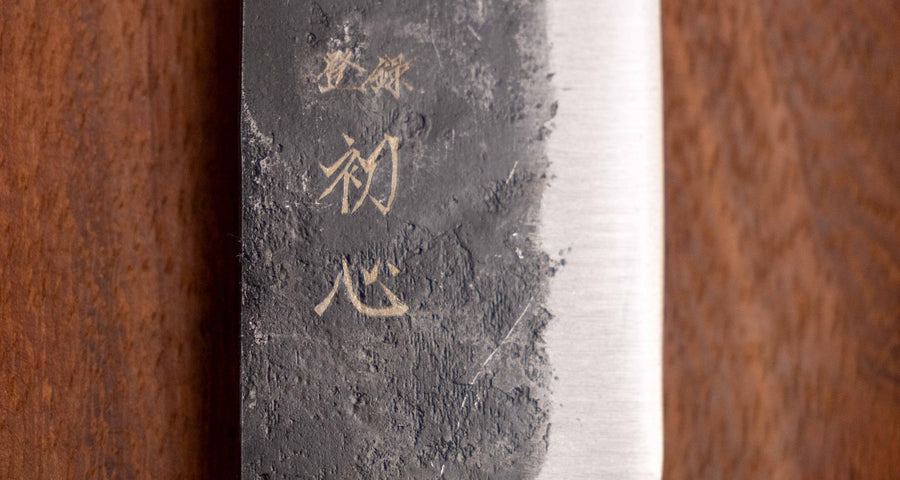 登録
初
心